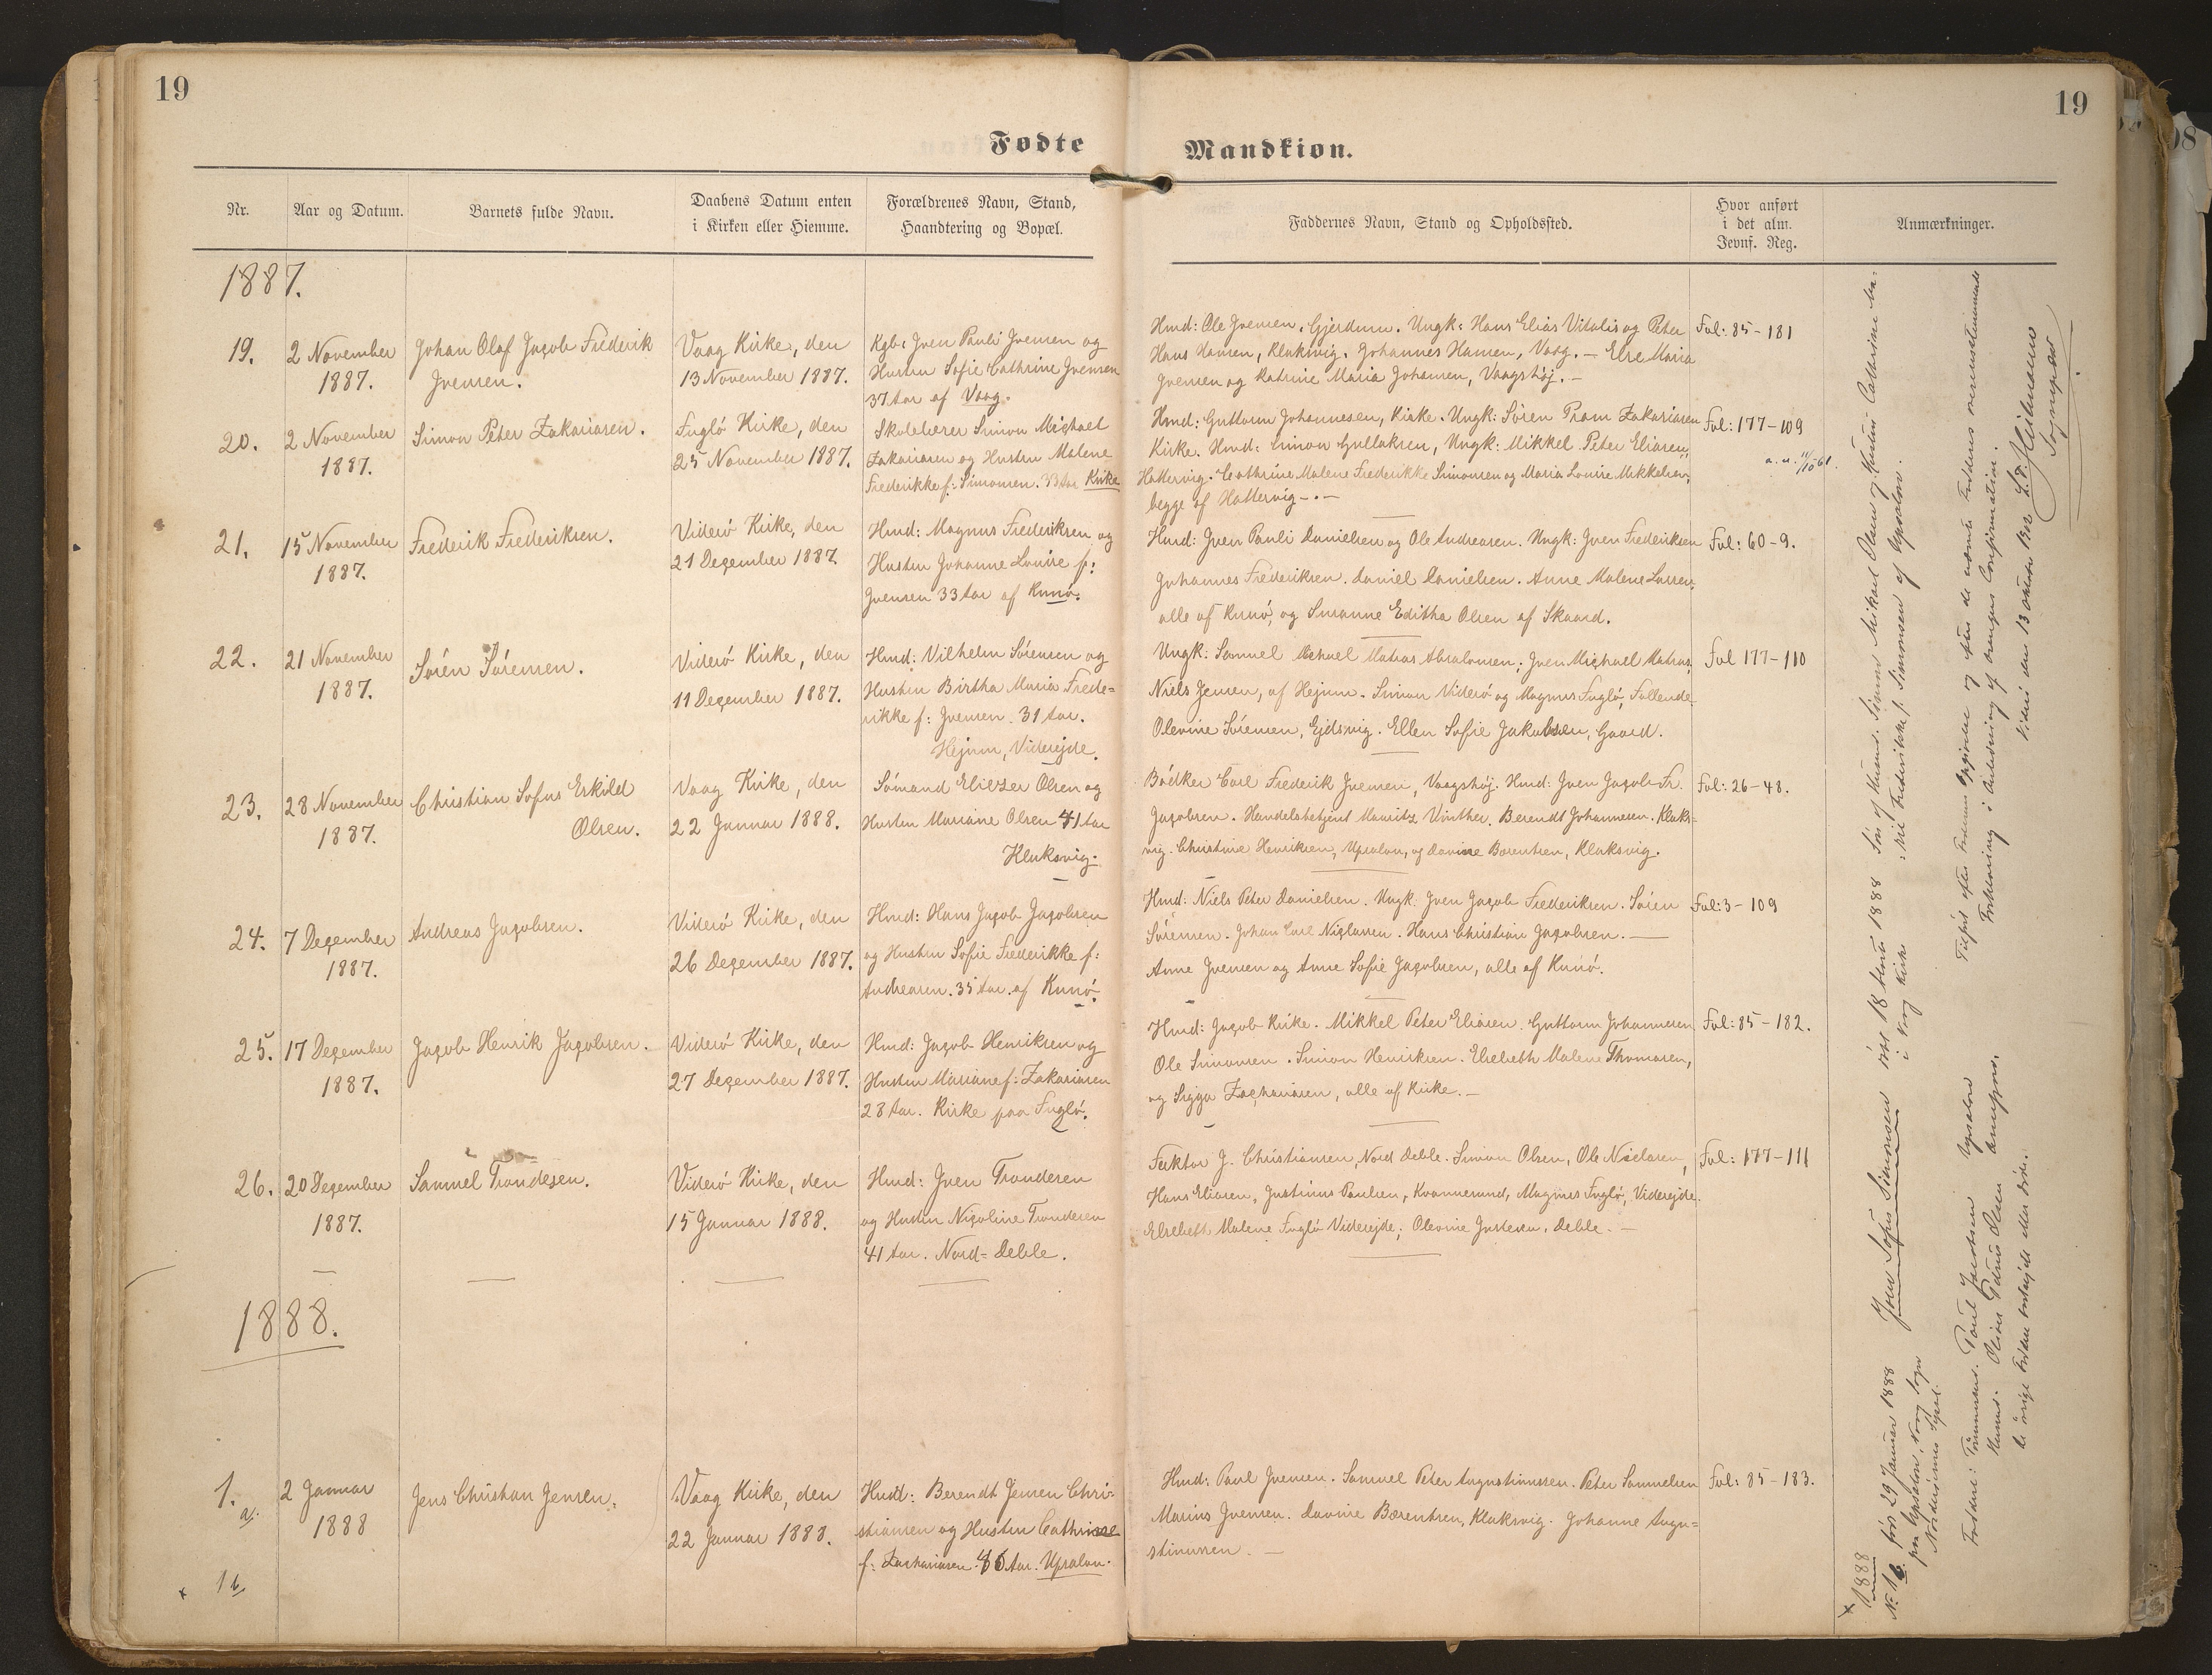 19
19
Fødte
Mandkiøn.
Nr.
Aar og Datum.
Barnets fulde Navn.
Daabens Datum enten
i Kirken eller Hiemme.
Forældrenes Navn, Stand,
Haandtering og Bopæl.
Faddernes Navn, Stand og Opholdssted.
Hvor anført
i det alm.
Jevnf. Reg.
Anmærkninger.
1887.
19.
2 November
1887.
Johan Olaf Jacob Frederik
Joensen.
Vaag Kirke, den
13 November 1887.
Kgb: Joen Pauli Joensen og
Hustru Sofie Cathrine Joensen
37 Aar af Vaag.
Hmd: Ole Joensen, Gjerdum. Ungk: Hans Elias Vitalis og Peter
Hans Hansen, Klaksvig. Johannes Hansen, Vaag. — Else Maria
Joensen og Katrine Maria Johansen, Vaagshøj. —
Fol: 85-181
20.
2 November
1887.
Simon Peter Zakariasen.
Fuglø Kirke, den
25 November 1887.
Skolelærer Simon Michael
Zakariasen og Hustru Malene
Frederikke f: Simonsen. 33 Aar Kirke
Hmd: Guttorm Johannesen, Kirke. Ungk: Søren Pram Zakariasen
Kirke. Hmd: Simon Gullaksen, Ungk: Mikkel Peter Eliasen,
Hattervig. Cathrine Malene Frederikke Simonsen og Maria Louise Mikkelsen,
begge af Hattervig — . —
Fol: 177-109
21.
15 November
1887.
Frederik Frederiksen.
Viderø Kirke, den
21 December 1887.
Hmd: Magnus Frederiksen og
Hustru Johanne Louise f:
Joensen 33 Aar af Kunø.
Hmd: Joen Pauli Danielsen og Ole Andreasen. Ungk: Joen Frederiksen
Johannes Frederiksen. Daniel Danielsen. Anne Malene Larsen,
alle af Kunø, og Susanne Editha Olsen af Skaard.
Fol: 60-9.
22.
21 November
1887.
Søren Sørensen.
Viderø Kirke, den
11 December 1887.
Hmd: Vilhelm Sørensen og
Hustru Birtha Maria Frede=
rikke f: Joensen. 31 Aar.
Hejnum, Viderejde.
Ungk: Samuel Michael Matras Absalonsen; Joen Michael Matras,
Niels Jensen, af Hejnum. Simon Viderø og Magnus Fuglø,
Olevine Sørensen, Ejdsvig. Ellen Sofie Jakobsen, Gaard.
Fol 177-110
23.
28 November
1887.
Christian Sofus Eskild
Olsen.
Vaag Kirke, den
22 Januar 1888.
Sømand Eliezer Olsen og
Hustru Mariane Olsen 41 Aar
Klaksvig.
Bødker Carl Frederik Joensen, Vaagshøj. Hmd: Joen Jacob Fr.
Jacobsen. Handelsbetjent Mauritz Vinther. Berendt Johannesen. Klaks=
vig. Christine Henriksen, Upsalon, og Davine Bærentsen, Klaksvig.
Fol: 26-48.
24.
7 December
1887.
Andreas Jacobsen.
Viderø Kirke, den
26 December 1887.
Hmd: Hans Jacob Jacobsen
og Hustru Sofie Frederikke f:
Andreasen. 35 Aar. af Kunø.
Hmd: Niels Peter Danielsen. Ungk: Joen Jacob Frederiksen. Søren
Sørensen. Johan Carl Niclassen. Hans Christian Jacobsen. —
Anne Joensen og Anne Sofie Jacobsen, alle af Kunø.
Fol: 3-109
25.
17 December
1887.
Jacob Henrik Jacobsen.
Viderø Kirke, den
27 December 1887.
Hmd: Jacob Henriksen og
Hustru Mariane f: Zakariasen
28 Aar. Kirke paa Fuglø.
Hmd: Jacob Kirke. Mikkel Peter Eliasen. Guttorm Johannesen
Ole Simonsen. Simon Henriksen. Elsebeth Malene Thomasen,
og Sigga Zachariasen, alle af Kirke. —
Fol: 85-182.
26.
20 December
1887.
Samuel Trondesen.
Viderø Kirke, den
15 Januar 1888.
Hmd: Joen Trondesen
og Hustru Nicoline Trondesen
41 Aar. Nord=Deble.
Faktor J. Christiansen, Nord Deble. Simon Olsen, Ole Nielsen,
Hans Eliasen, Justinus Poulsen, Kvannesund, Magnus Fuglø, Viderejde.
Elsebeth Malene Fuglø Viderejde; Olevine Justesen, Deble. —
Fol: 177-111
1888.
1.
a.
2 Januar
1888
Jens Christian Jensen.
Vaag Kirke, den
22 Januar 1888.
Hmd: Berendt Jensen Chri=
stiansen og Hustru Cathrine
f: Zachariasen. 46 Aar. Upsalon.
Hmd: Paul Joensen. Samuel Peter Augustinussen. Peter Samuelsen
Marius Joensen. Davine Bærentsen, Klaksvig. Johanne Augu=
stinussen. —
Fol: 85-183.
x 1 b.
x 1888
No 1 b. født 29 Januar 1888
paa Upsalon, Vaag Sogn
Norderøernes Syssel.
Joen Sofus Simonsen døbt 18 1888
i Vaag Kirke
af Upsalon.
Faddere: Poul Jacobsen Upsalon
Oliver Petrus Olsen
de øvrige Faddere
Tilføjet efter
i Anledning af Confirmation.
Viderø den 13 Oktober 1902
Sognepræst